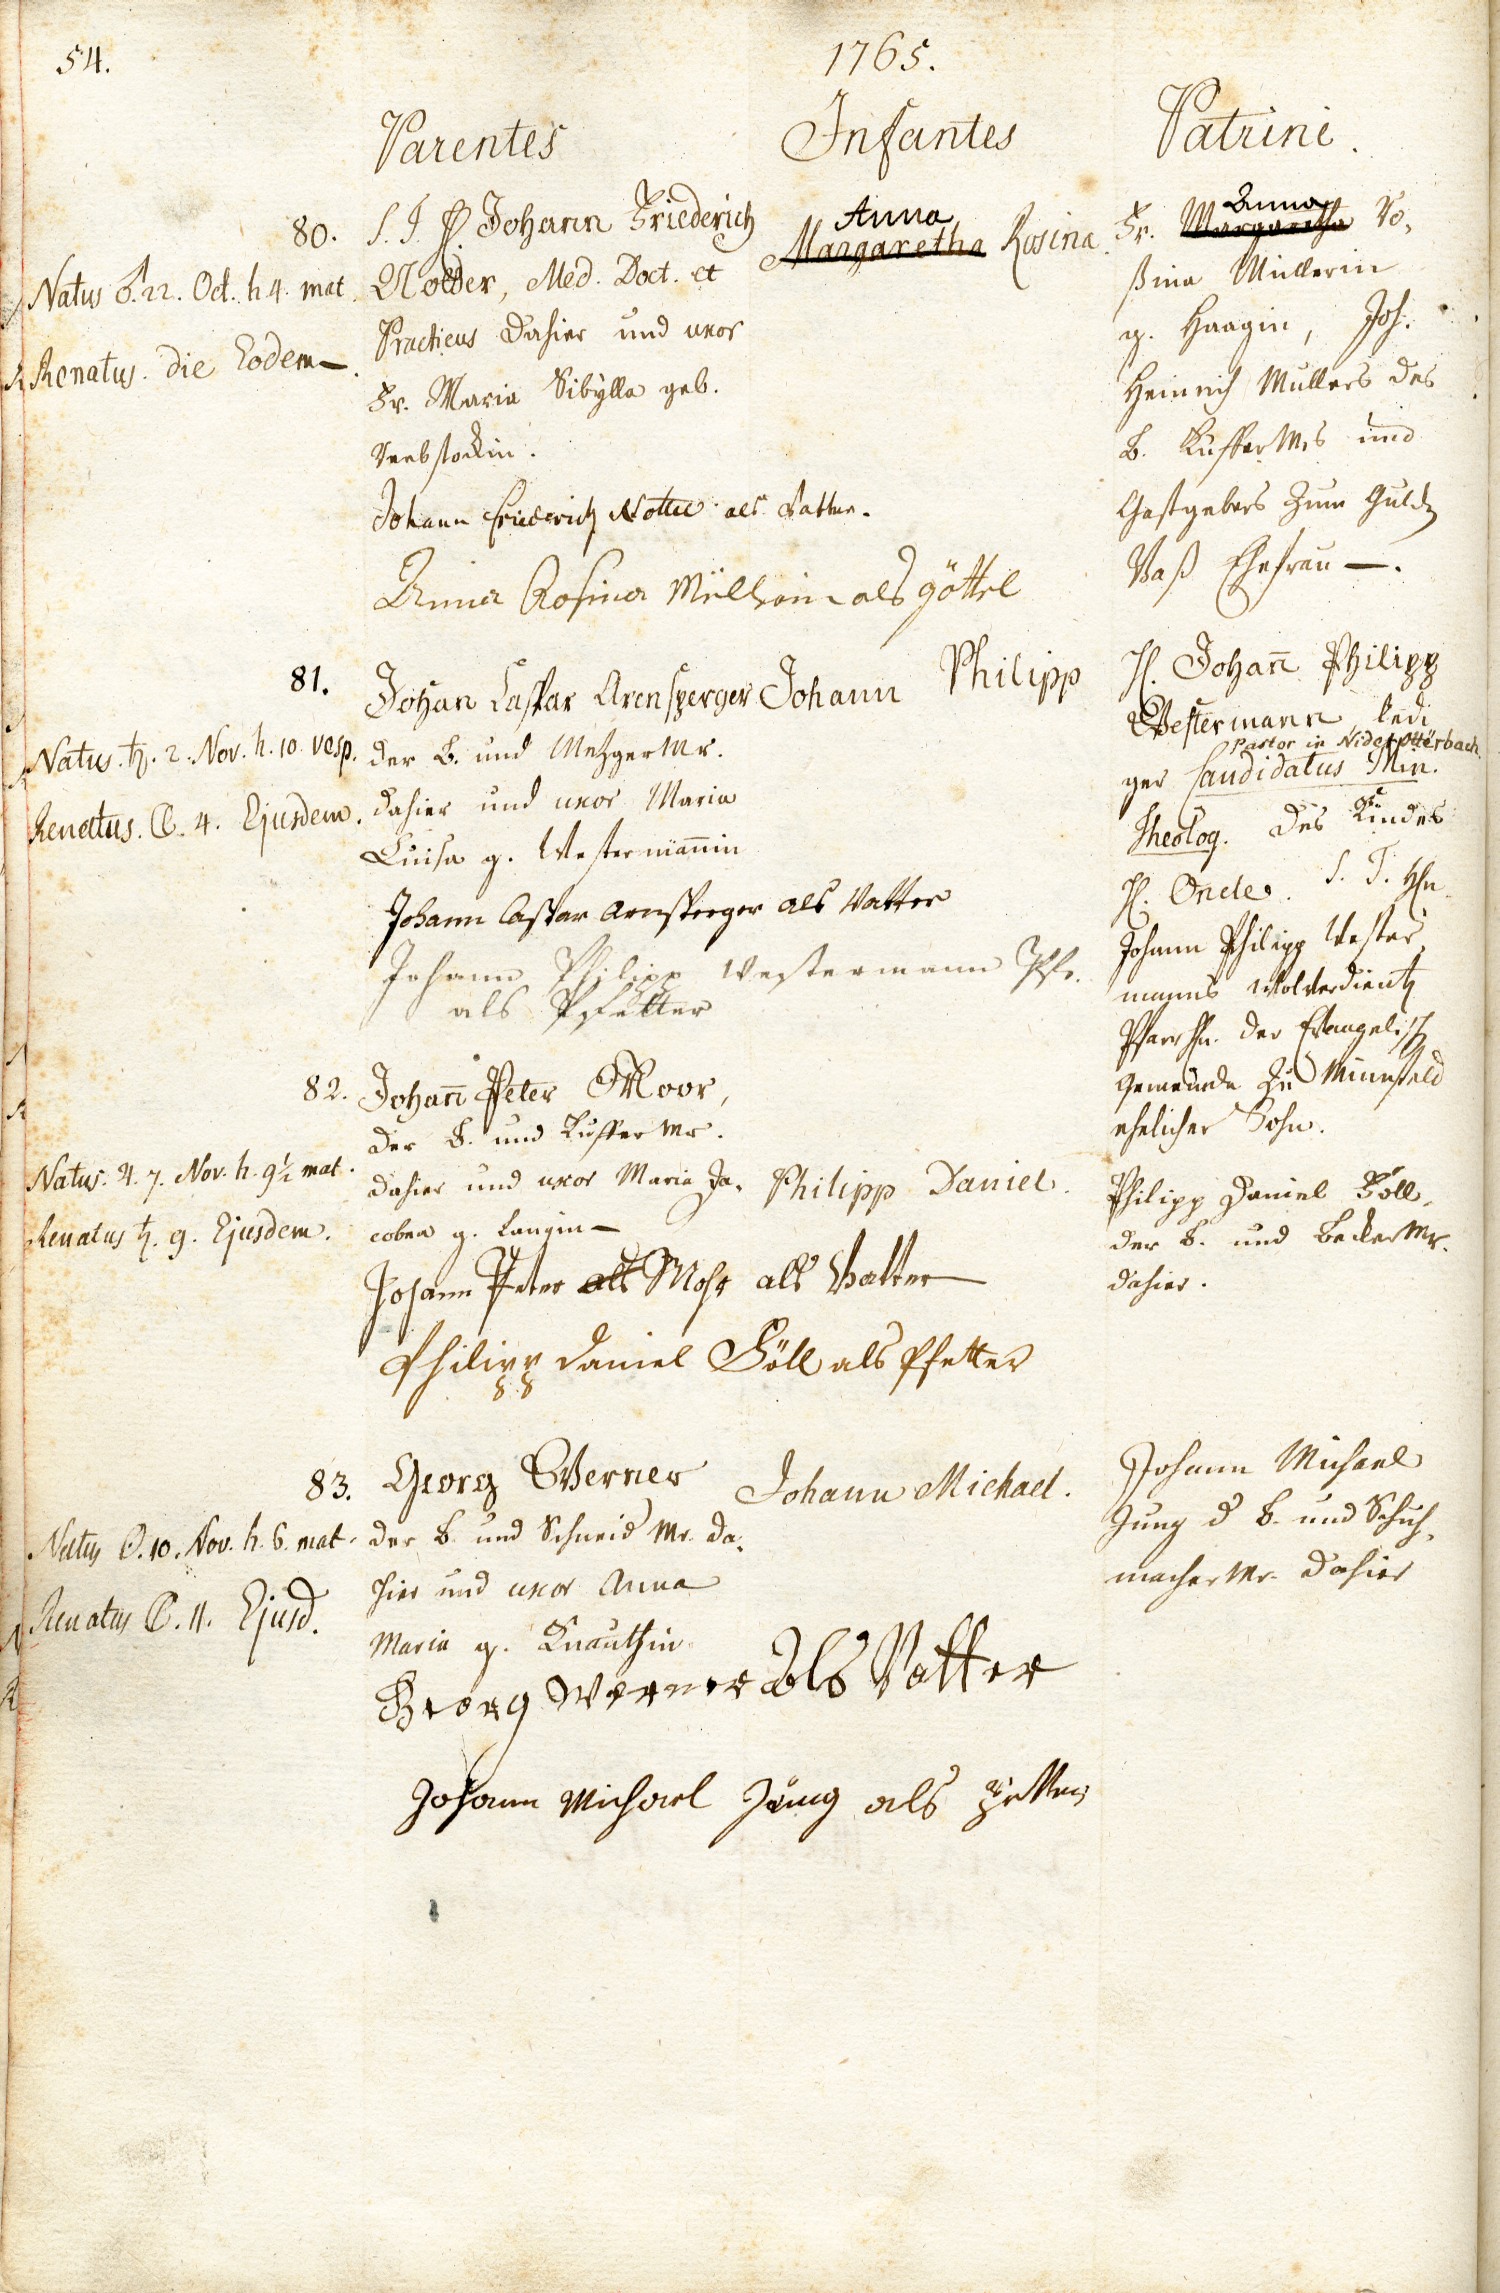 54.
1765.
Parentes
Infantes
Patrini.
80.
Natus ♂. 22. Oct. h. 4. mat.
Renatus. die Eodem —.
S. T. H. Johann Friederich
Nolder, Med. Doct. et
Practicus dahier und uxor
Fr. Maria Sibylla geb.
Johann Friederich als Vatter.
Anna Rosina Müllerin als göttel
Anna
Margaretha Rosina.
Anna
Fr. Margaretha Ro,
ßina Müllerin
g. Haagin, Joh.
Heinrich Mullers des
B. Kuffer Mrs und
Gastgebers zum Guld
Vaß Ehefrau —.
81.
Natus. ♄. 2. Nov. h. 10. vesp.
Renatus. ☾. 4. Ejusdem.
Johan Caspar Arensperger
der B. und Metzger Mr.
dahier und uxor Maria
Luisa g. Westermännin
Johann Caspar Arnsperger als Vatter
Johann Philipp Westermann Pfr.
als Pfetter
Johann Philipp
H. Johañ Philipp
Westermann ledi
Pastor in Nider Otterbach.
ger Candidatus Min.
Theolog. des Kindes
H. Oncle. S. T. Hn
Johann Philipp Wester,
manns wolverdient
Pfarr Hn. der Evangelisch
Gemeinde zu Minnfeld
ehelicher Sohn.
82.
Natus. ♃. 7. Nov. h. 9½ mat.
Renatus ♄. 9. Ejusdem.
Johañ Peter Moor,
der B. und Kuffer Mr.
dahier und uxor Maria Ja,
cobea g. Langin —
Johann Peter als Mohr als Vatter
Philipp Daniel Föll als Pfetter
Philipp Daniel.
Philipp Daniel Föll,
der B. und Becker Mr.
dahier.
83.
Natus ☉. 10. Nov. h. 6. mat.
Renatus ☾. 11. Ejusd.
Georg Werner
der B. und Schneid Mr. da,
hier und uxor Anna
Maria g. Knauthin
Georg Werner Als Vatter
Johann Michael Jung als
Johann Michael.
Johann Michael
Jung d B. und Schuh,
macher Mr. dahier